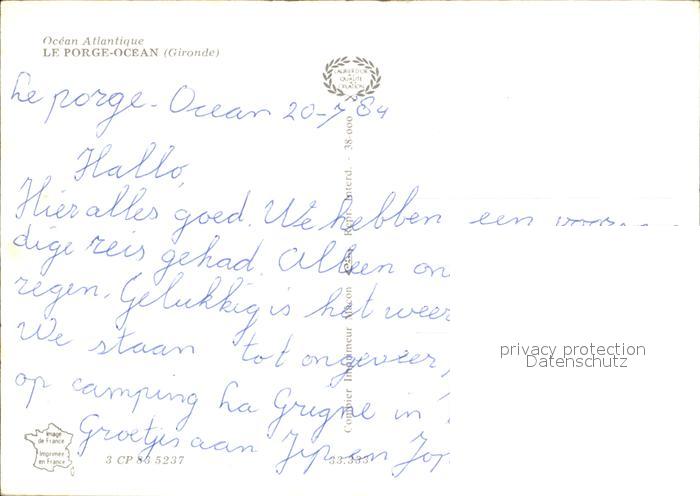 Océan Atlantique
LE PORGE-OCÉAN (Gironde)
LAURIER D'OR
QUALITÉ
CRÉATION
Le porge - Ocean 20-7 84
Hallo,
Hier alles goed. We hebben een
dige reis gehad. Alleen on
regen. Gelukkig is het weer
We staan tot ongeveer,
op camping La Grigne in
Groetjes aan Jip en
Combier Imprimeur Macon
Interd. - 38-000
privacy protection
Datenschutz
Image
de France
Imprimée
en France
3 CP 83 5237
33.333